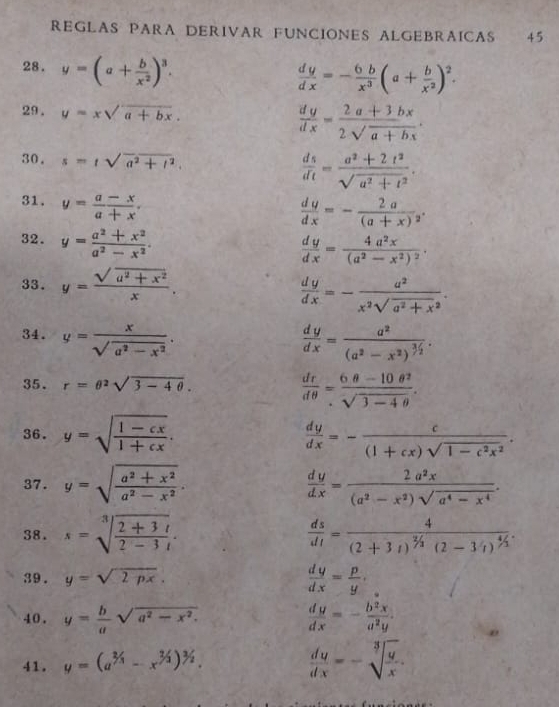 REGLAS PARA DERIVAR FUNCIONES ALGEBRAICAS 45
28. y = (a + b/x²)³. dy/dx = − 6 b/x³ (a + b/x²)².
29. y = x√(a + bx). dy/dx = (2 a + 3 bx)/(2 √(a + bx)).
30. s = t √(a² + t²). ds/dt = (a² + 2 t²)/√(a² + t²).
31. y = (a − x)/(a + x). dy/dx = − 2 a/(a + x)².
32. y = (a² + x²)/(a² − x²). dy/dx = 4 a²x/(a² − x²)².
33. y = √(a² + x²)/x. dy/dx = − a²/(x²√(a² + x²)).
34. y = x/√(a² − x²). dy/dx = a²/(a² − x²)^(3/2).
35. r = θ² √(3 − 4 θ). dr/dθ = (6 θ − 10 θ²)/√(3 − 4 θ).
36. y = √((1 − cx)/(1 + cx)). dy/dx = − c/((1 + cx) √(1 − c²x²)).
37. y = √((a² + x²)/(a² − x²)). dy/dx = 2 a²x/((a² − x²) √(a⁴ − x⁴)).
38. s = ∛((2 + 3 t)/(2 − 3 t)). ds/dt = 4/((2 + 3 t)^(2/3) (2 − 3 t)^(4/3)).
39. y = √(2 px). dy/dx = p/y.
40. y = b/a √(a² − x²). dy/dx = − b²x/a²y.
41. y = (a^(2/3) − x^(2/3))^(3/2). dy/dx = − ∛(y/x).